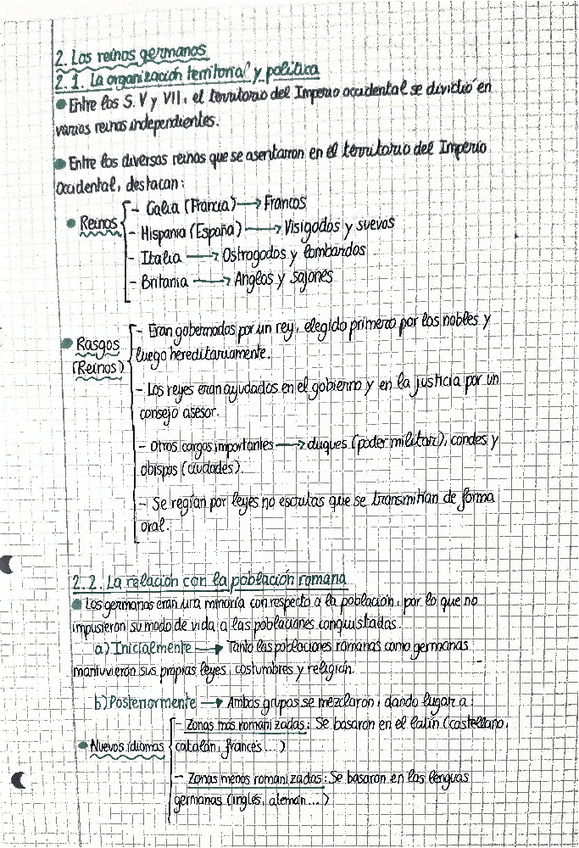 2. Los reinos germanos
2.1. La organización territorial y política
● Entre los S. V y VII, el territorio del Imperio occidental se dividió en
varios reinos independientes.
● Entre los diversos reinos que se asentaron en el territorio del Imperio
Occidental, destacan:
● Reinos
- Galia (Francia) → Francos
- Hispania (España) → Visigodos y suevos
- Italia → Ostrogodos y lombardos
- Britania → Anglos y sajones
● Rasgos
(Reinos)
- Eran gobernados por un rey, elegido primero por los nobles y
luego hereditariamente.
- Los reyes eran ayudados en el gobierno y en la justicia por un
consejo asesor.
- Otros cargos importantes → duques (poder militar), condes y
obispos (ciudades).
- Se regían por leyes no escritas que se transmitían de forma
oral.
2.2. La relación con la población romana
● Los germanos eran una minoría con respecto a la población, por lo que no
impusieron su modo de vida a las poblaciones conquistadas.
a) Inicialmente → Tanto las poblaciones romanas como germanas
mantuvieron sus propias leyes, costumbres y religión.
b) Posteriormente → Ambos grupos se mezclaron, dando lugar a:
● Nuevos idiomas
- Zonas más romanizadas: Se basaron en el latín (castellano,
catalán, francés...)
- Zonas menos romanizadas: Se basaron en las lenguas
germanas (inglés, alemán...)